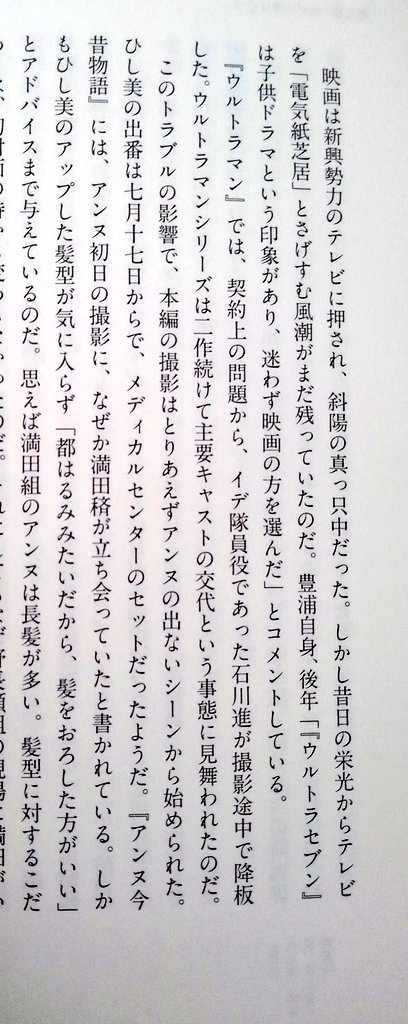 映画は新興勢力のテレビに押され、斜陽の真っ只中だった。しかし昔日の栄光からテレビ
を「電気紙芝居」とさげすむ風潮がまだ残っていたのだ。豊浦自身、後年「『ウルトラセブン』
は子供ドラマという印象があり、迷わず映画の方を選んだ」とコメントしている。
『ウルトラマン』では、契約上の問題から、イデ隊員役であった石川進が撮影途中で降板
した。ウルトラマンシリーズは二作続けて主要キャストの交代という事態に見舞われたのだ。
このトラブルの影響で、本編の撮影はとりあえずアンヌの出ないシーンから始められた。
ひし美の出番は七月十七日からで、メディカルセンターのセットだったようだ。『アンヌ今
昔物語』には、アンヌ初日の撮影に、なぜか満田かずほが立ち会っていたと書かれている。しか
もひし美のアップした髪型が気に入らず「都はるみみたいだから、髪をおろした方がいい」
とアドバイスまで与えているのだ。思えば満田組のアンヌは長髪が多い。髪型に対するこだ